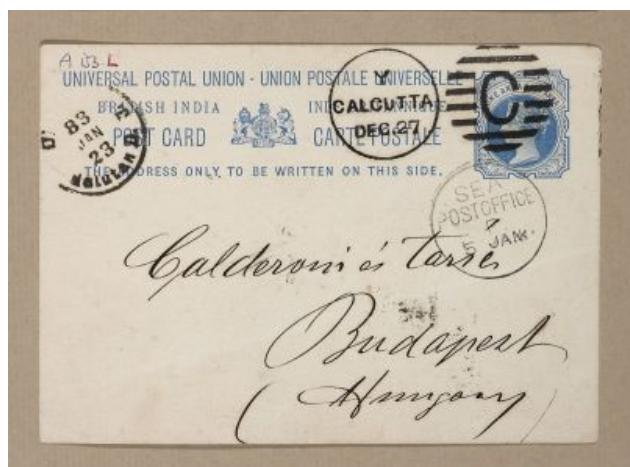 A 153 L
UNIVERSAL POSTAL UNION - UNION POSTALE UNIVERSELLE
BRITISH INDIA
POST CARD CARTE POSTALE
THE ADDRESS ONLY TO BE WRITTEN ON THIS SIDE.
CALCUTTA
DEC. 27
C
83
JAN
23
SEA
POST OFFICE
5 JAN.
Calderoni és Társa
Budapest
(Hungary)